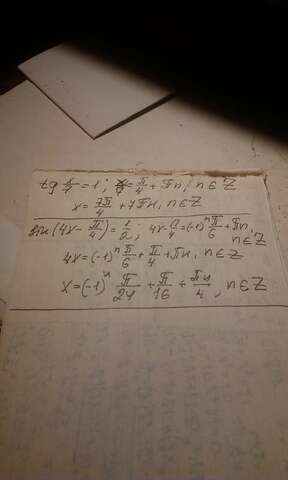 tg x/7 = 1; x/7 = π/4 + πn, n∈Z
x = 7π/4 + 7πn, n∈Z
sin(4x - π/4) = 1/2, 4x - π/4 = (-1)^n π/6 + πn, n∈Z
4x = (-1)^n π/6 + π/4 + πn, n∈Z
x = (-1)^n π/24 + π/16 + πn/4, n∈Z